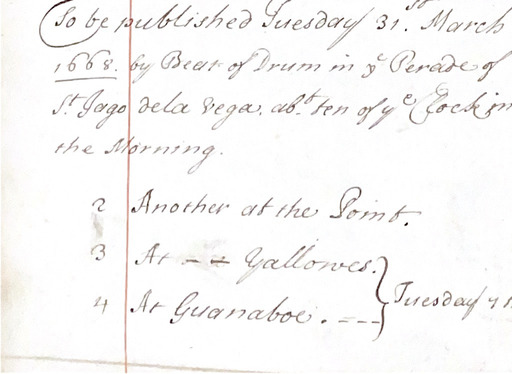 To be published Tuesday 31.st March
1668. by Beat of Drum in ye Perade of
St. Jago dela Vega. abt. ten of ye Clock in
the Morning.
2 Another at the Point.
3 At -- Yallowes.
4 At Guanaboe. --- Tuesday 7